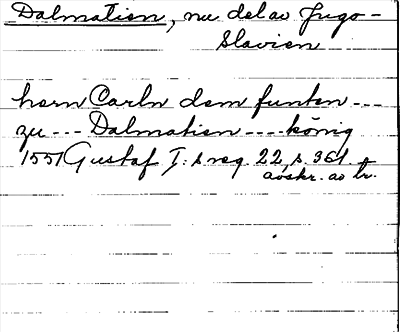 Dalmatien, nu del av Jugo-
Slavien
hern Carln dem funten ---
zu --- Dalmatien ---- könig
1551 Gustaf I:s reg. 22, s. 361.
avskr. av tr.